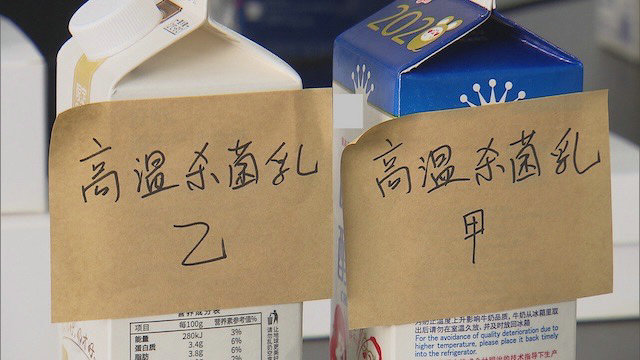 高温杀菌乳
乙
项目 每100g 营养素参考值%
能量 280kJ 3%
蛋白质 3.4g 6%
脂肪 3.8g 6%
202
高温杀菌乳
甲
防止温度上升影响牛奶品质,牛奶从冰箱里取
出后请勿在室温久放,并及时放回冰箱
For the avoidance of quality deterioration due to
higher temperature, please place it back timely
into the refrigerator.